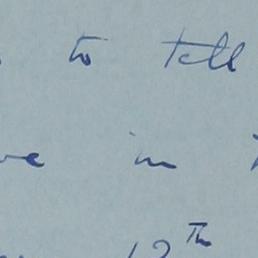 to tell
in
12th